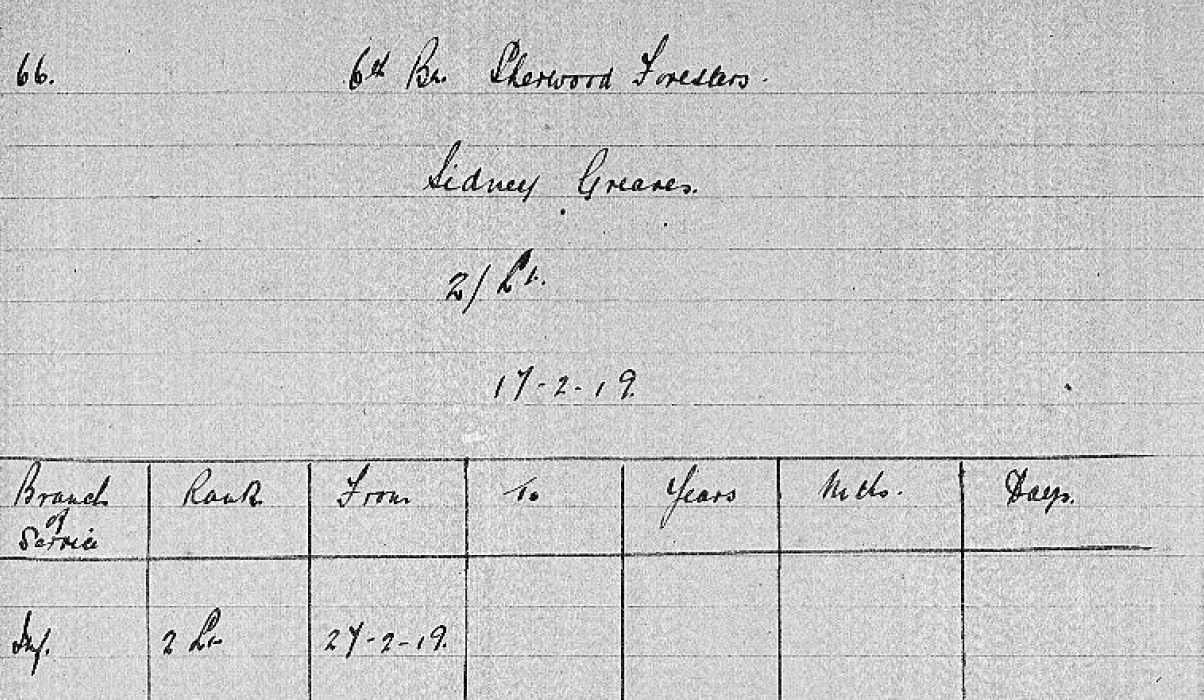 66. 6th Bn. Sherwood Foresters.
Sidney Greaves.
2/Lt.
17-2-19.
Branch of Service Rank From To Years Mths. Days.
Inf. 2 Lt. 27-2-19.